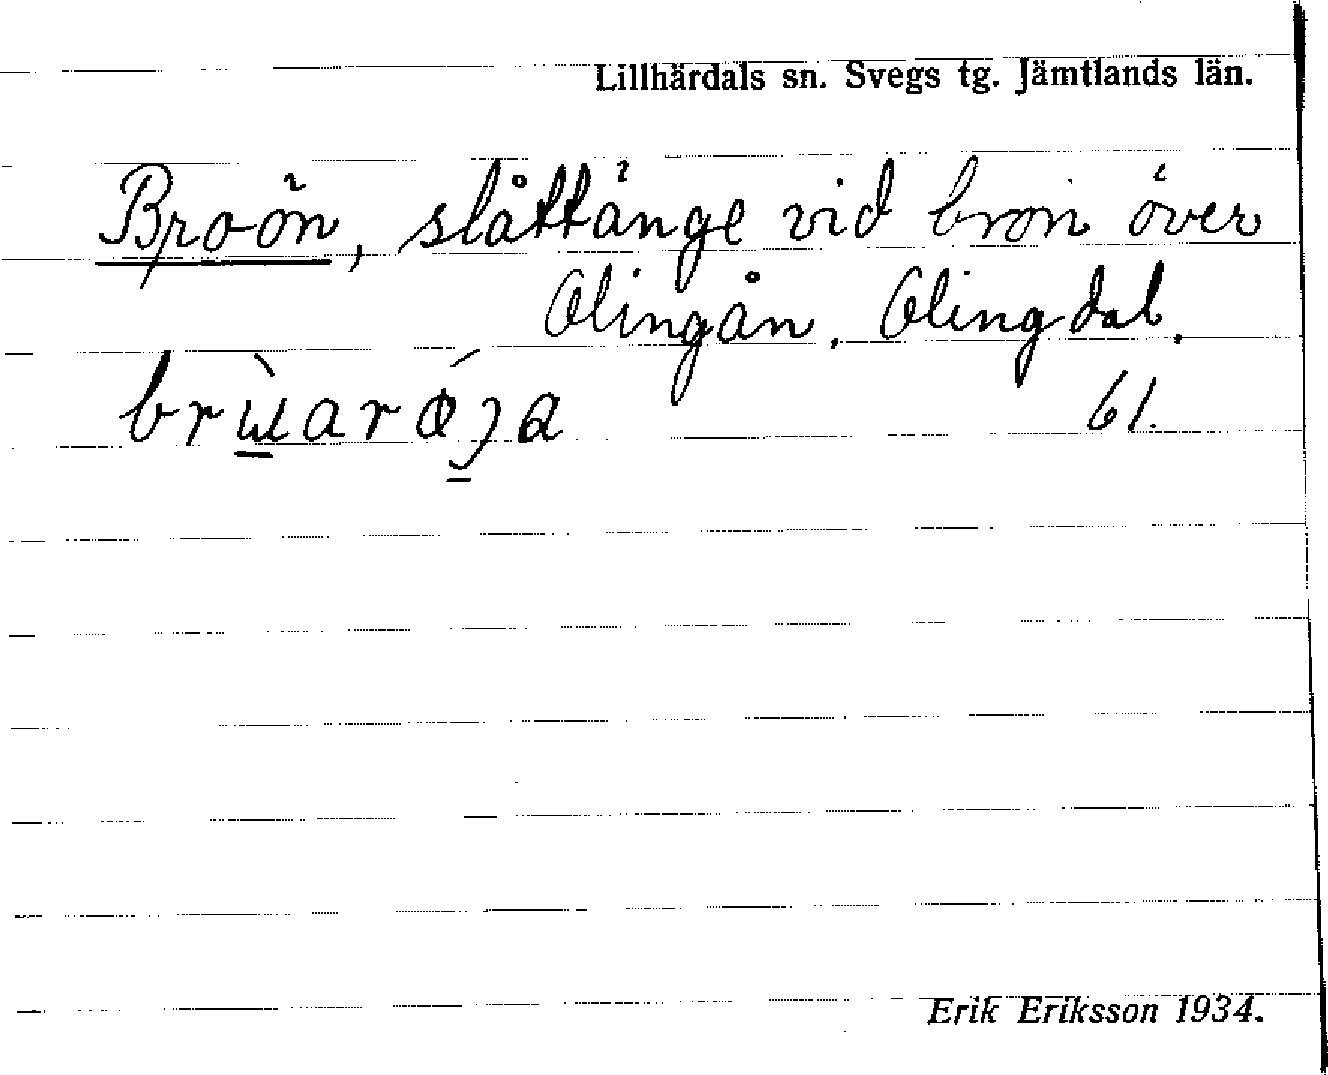 Lillhärdals sn. Svegs tg. Jämtlands län.
Broön, slåttänge vid bron över
Olingån, Olingdal.
61.
Erik Eriksson 1934.